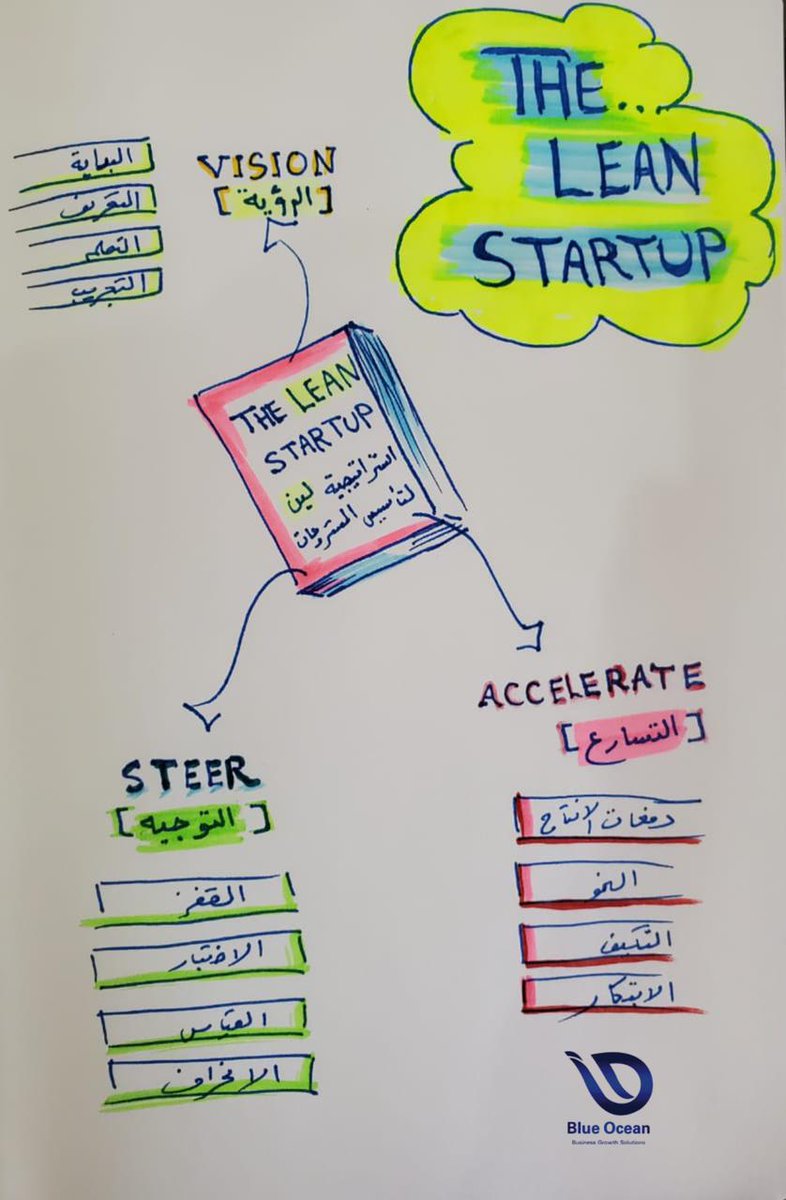 THE...
LEAN
STARTUP
VISION
[الرؤية]
البداية
التعريف
التعلم
التجريب
THE LEAN
STARTUP
استراتيجية لين
لتأسيس المشروعات
STEER
[التوجيه]
القفز
الاختبار
القياس
الانحراف
ACCELERATE
[التسارع]
دفعات الانتاج
النمو
التكيف
الابتكار
Blue Ocean
Business Growth Solutions